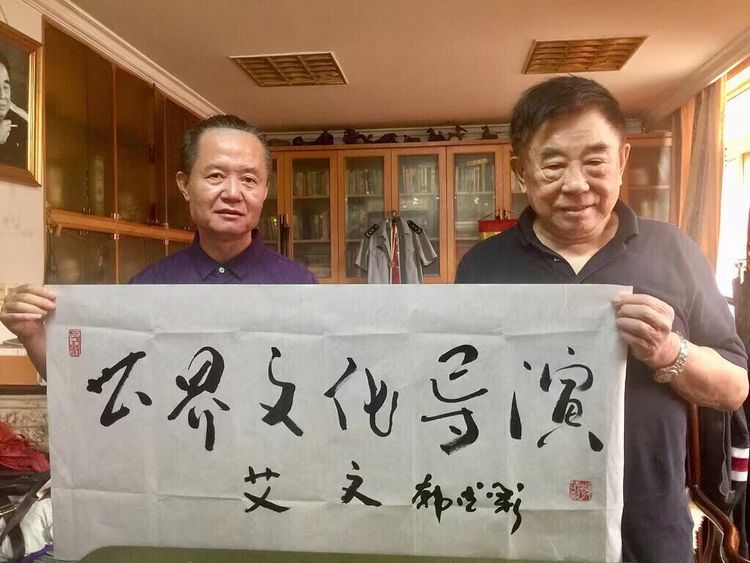 世界文化导演
艾文 韩德彩